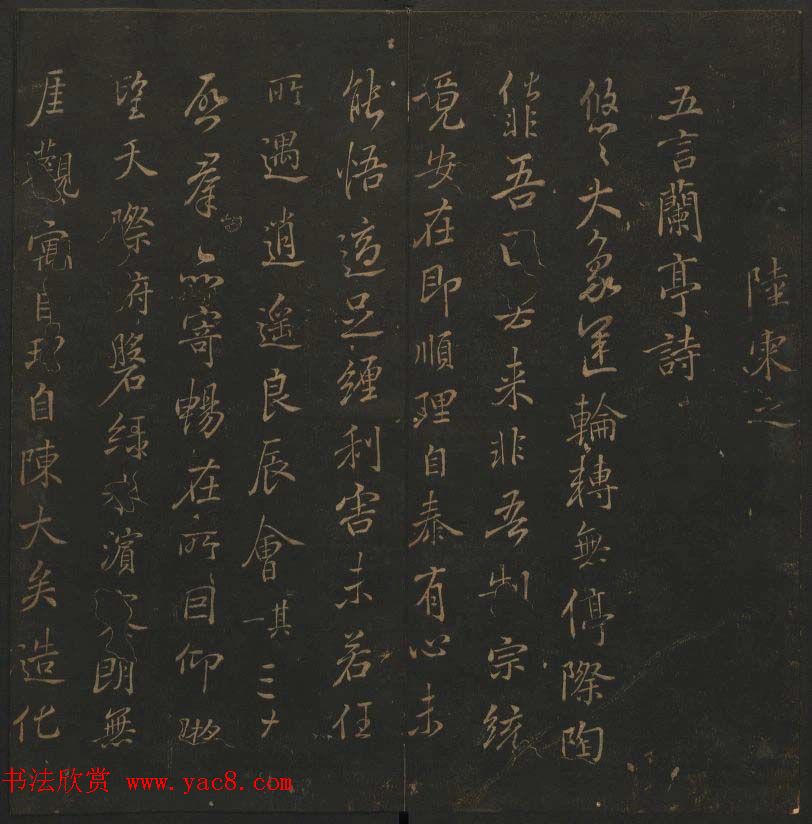 陸柬之
五言蘭亭詩
悠々大象運輪轉無停際陶
化非吾去来非吾制宗統
竟安在即順理自泰有心未
能悟適足纏利害未若任
所遇逍遥良辰會一其三
啓羣品寄暢在所因仰眺
望天際府磐緑水濱寥朗無
厓觀寓目理自陳大矣造化
书法欣赏 www.yac8.com